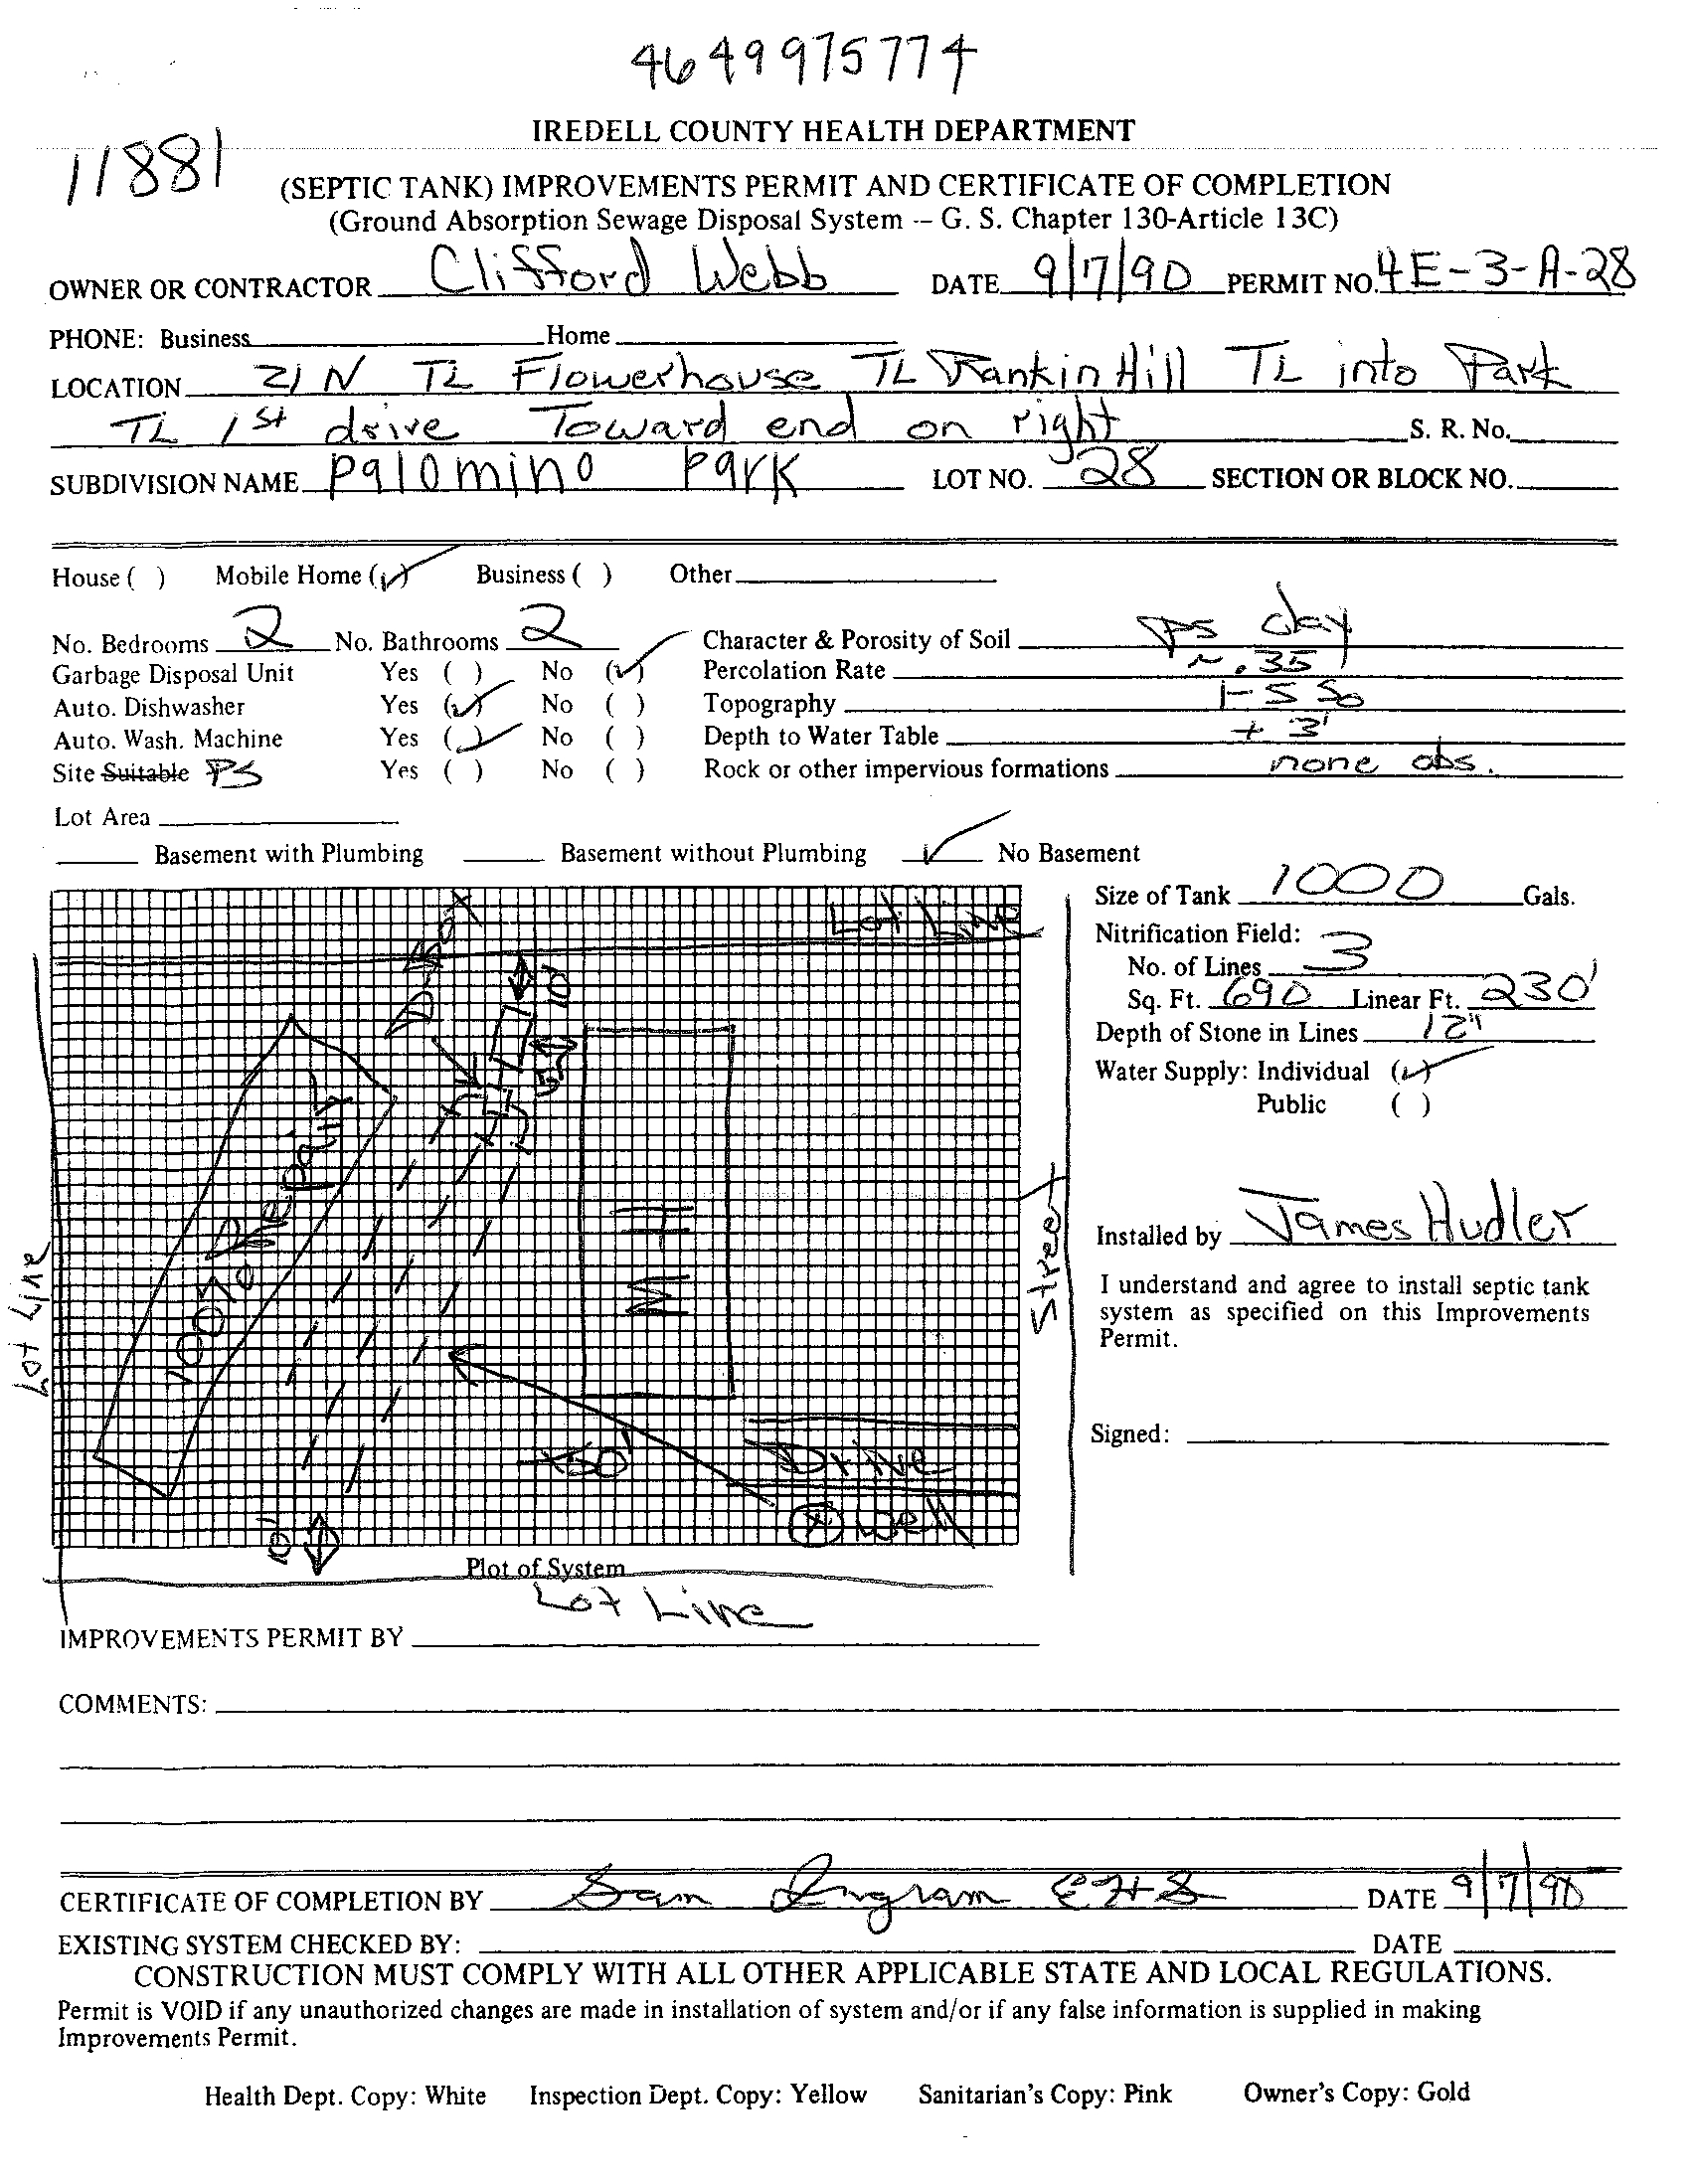 4649975774
IREDELL COUNTY HEALTH DEPARTMENT
11881
(SEPTIC TANK) IMPROVEMENTS PERMIT AND CERTIFICATE OF COMPLETION
(Ground Absorption Sewage Disposal System -- G. S. Chapter 130-Article 13C)
OWNER OR CONTRACTOR Clifford Webb DATE 9/7/90 PERMIT NO. 4E-3-A-28
PHONE: Business Home
LOCATION 21 N TL Flowerhouse TL Rankin Hill TL into Park
TL 1st drive Toward end on right S. R. No.
SUBDIVISION NAME Palomino Park LOT NO. 28 SECTION OR BLOCK NO.
House ( ) Mobile Home (✓) Business ( ) Other
No. Bedrooms 2 No. Bathrooms 2 Character & Porosity of Soil PS clay
Garbage Disposal Unit Yes ( ) No (✓) Percolation Rate ~.35
Auto. Dishwasher Yes (✓) No ( ) Topography 1-5 %
Auto. Wash. Machine Yes (✓) No ( ) Depth to Water Table + 3'
Site Suitable PS Yes ( ) No ( ) Rock or other impervious formations none obs.
Lot Area
Basement with Plumbing Basement without Plumbing ✓ No Basement
Size of Tank 1000 Gals.
Nitrification Field:
No. of Lines 3
Sq. Ft. 690 Linear Ft. 230'
Depth of Stone in Lines 12"
Water Supply: Individual (✓)
Public ( )
Installed by James Hudler
I understand and agree to install septic tank
system as specified on this Improvements
Permit.
Signed:
Lot Line
D-Box
10'
5'
100% Repair
M H
Street
Lot Line
+50'
Drive
Well
10'
Plot of System
Lot Line
IMPROVEMENTS PERMIT BY
COMMENTS:
CERTIFICATE OF COMPLETION BY Sam Ingram EHS DATE 9/7/90
EXISTING SYSTEM CHECKED BY: DATE
CONSTRUCTION MUST COMPLY WITH ALL OTHER APPLICABLE STATE AND LOCAL REGULATIONS.
Permit is VOID if any unauthorized changes are made in installation of system and/or if any false information is supplied in making
Improvements Permit.
Health Dept. Copy: White Inspection Dept. Copy: Yellow Sanitarian's Copy: Pink Owner's Copy: Gold